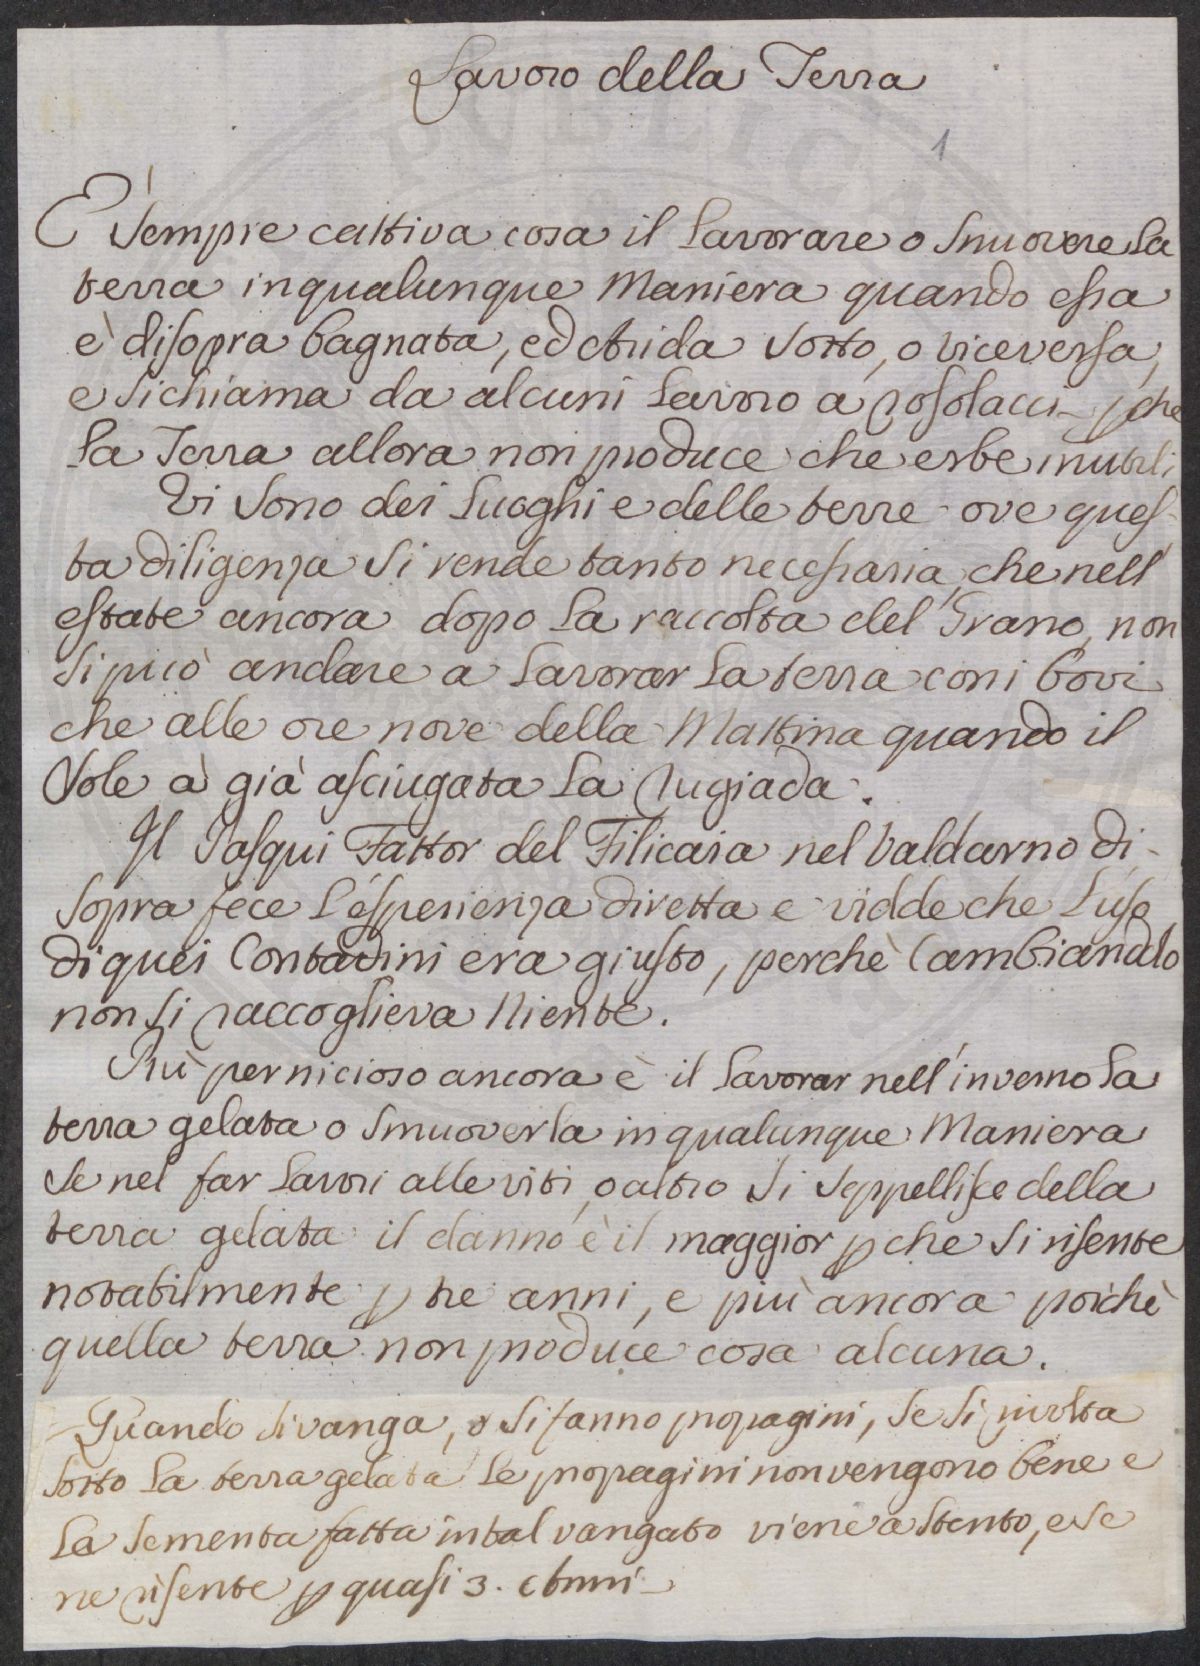 Lavoro della Terra
1
E' sempre cattiva cosa il lavorare o smuovere la
terra inqualunque Maniera quando essa
è disopra bagnata, ed Arida sotto, o viceversa,
e sichiama da alcuni lavoro a rosolacci pche
la Terra allora non produce che erbe inutili
Vi sono dei luoghi e delle terre ove ques-
ta diligenza si rende tanto necessaria, che nell'
estate ancora dopo la raccolta del Grano, non
si può andare a lavorar la terra coni bovi
che alle ore nove della Mattina quando il
Sole à già asciugata la rugiada.
Il Pasqui Fattor del Filicaia nel Valdarno di-
sopra fece l'esperienza diretta e vidde che l'uso
di quei Contadini era giusto, perchè Cambiandlo
non si raccoglieva Niente.
Più pernicioso ancora è il lavorar nell'inverno la
terra gelata o smuoverla inqualunque Maniera
se nel far lavori alle viti, o altro si seppellisce della
terra gelata il danno è il maggior pche si risente
notabilmente p tre anni, e più ancora poichè
quella terra non produce cosa alcuna.
Quando sivanga, o si fanno propagini, se si rivolta
sotto la terra gelata le propagini non vengono bene e
la sementa fatta intal vangato viene a stento, e se
ne risente p quasi 3. Anni